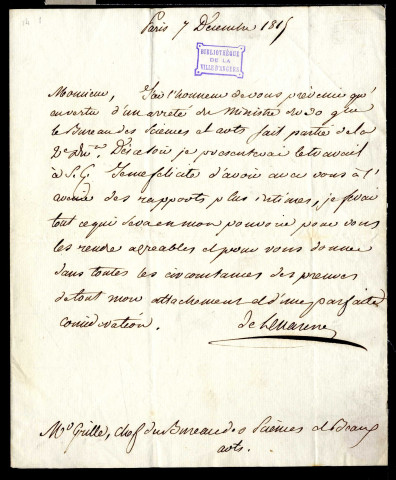 Paris 7 Décembre 1815
BIBLIOTHÈQUE
DE LA
VILLE D'ANGERS
Monsieur, J'ai l'honneur de vous prévenir qu'
en vertu d'un arrêté du Ministre du 30 que
le Bureau des Sciences et arts fait partie de la
2e don. Dès ce soir je présenterai le travail
à S. E. Je me félicite d'avoir avec vous à l'
avenir des rapports plus intimes, je ferai
tout ce qui sera en mon pouvoir pour vous
les rendre agréables et pour vous donner
dans toutes les circonstances des preuves
de tout mon attachement et d'une parfaite
considération.
Mr Grille, chef du Bureau des Sciences et Beaux
arts.